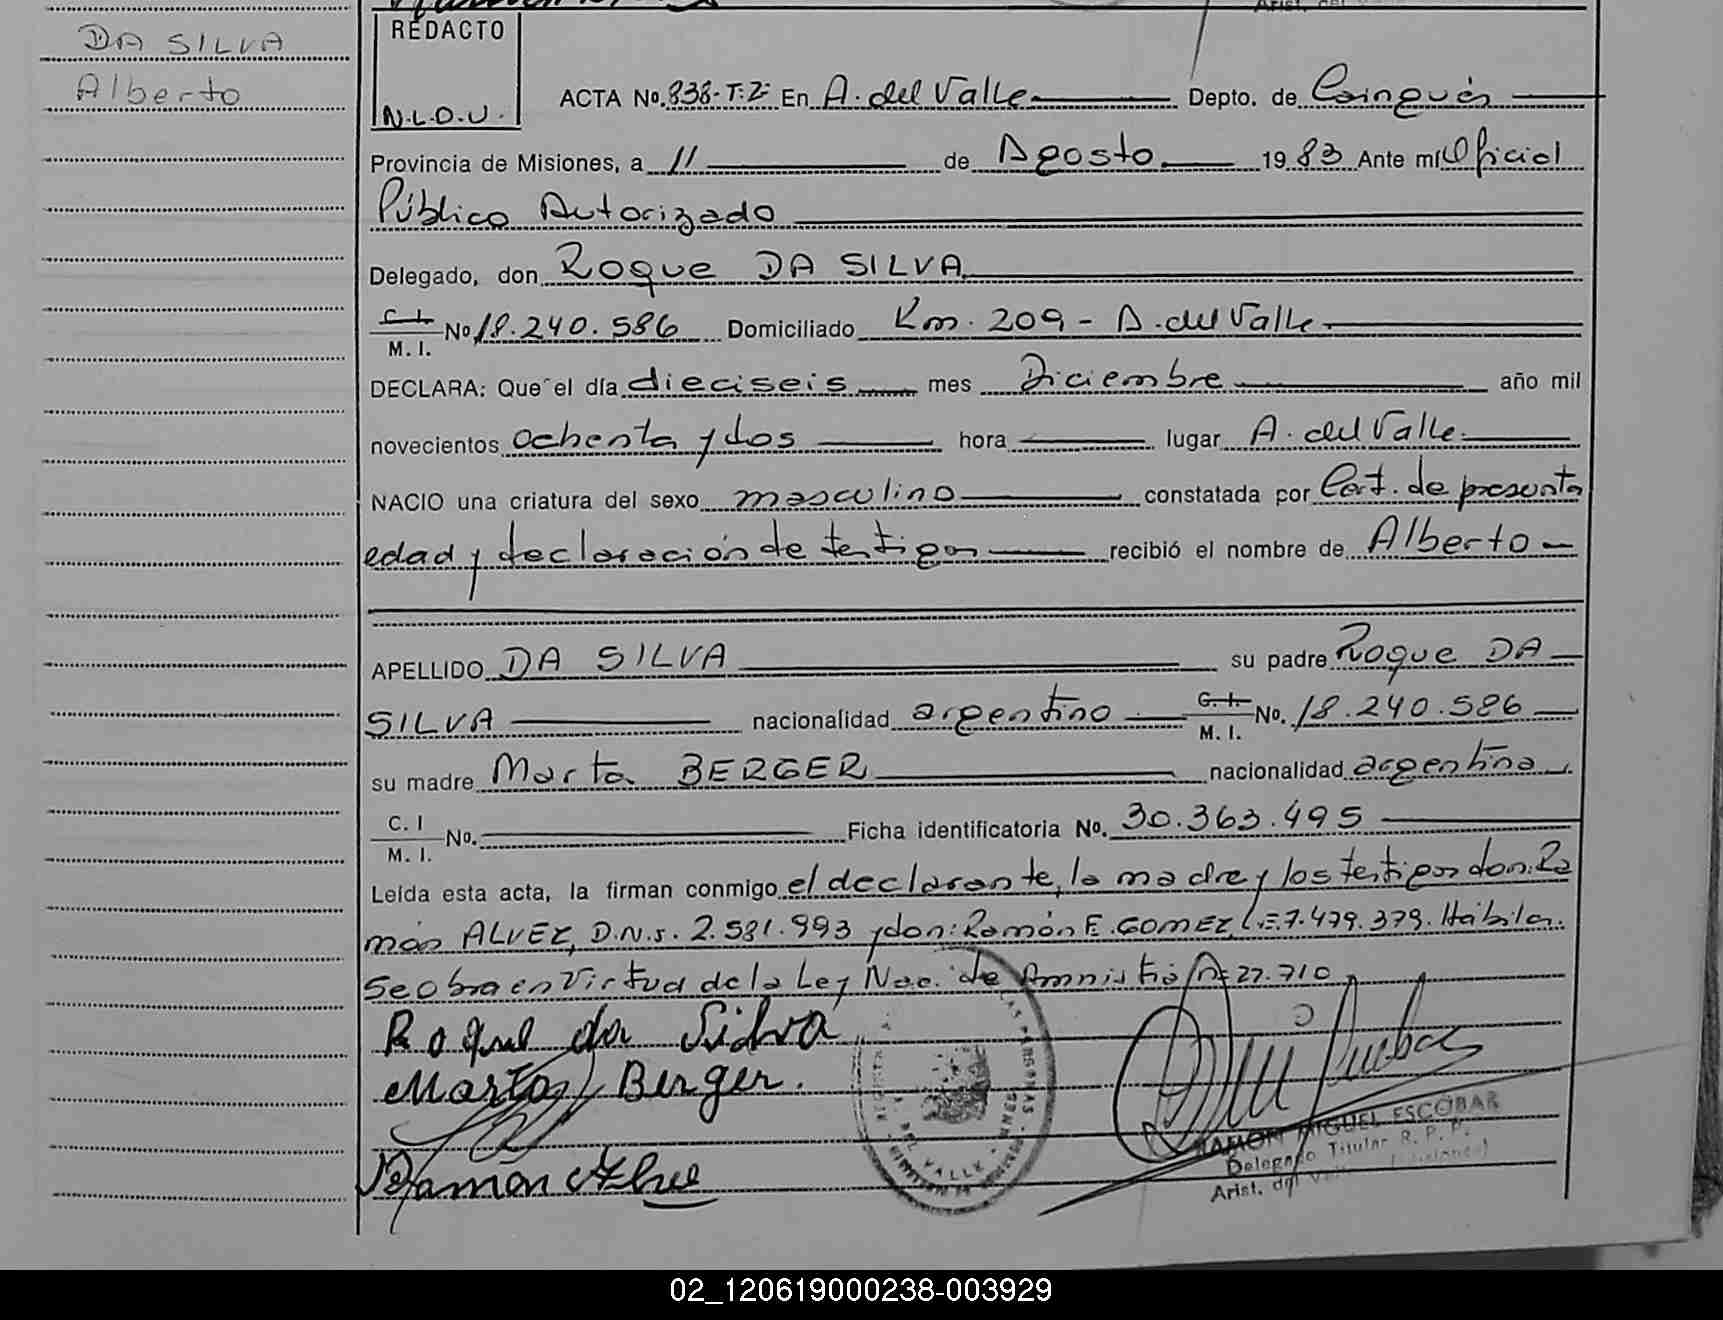 DA SILVA
Alberto
REDACTO
N.L.O.U.
ACTA No. 838-T.2- En A. del Valle Depto. de Cainguás
Provincia de Misiones, a 11 de Agosto 1983 Ante mí Oficial
Público Autorizado
Delegado, don Roque DA SILVA
C. I. / M. I. No 18.240.586 Domiciliado Km. 209 - A. del Valle.
DECLARA: Que el día dieciseis mes Diciembre año mil
novecientos ochenta y dos hora lugar A. del Valle.
NACIO una criatura del sexo masculino constatada por Cert. de presunta
edad y declaración de testigos recibió el nombre de Alberto
APELLIDO DA SILVA su padre Roque DA
SILVA nacionalidad argentino C. I. / M. I. No. 18.240.586
su madre Marta BERGER nacionalidad argentina
C. I / M. I. No. Ficha identificatoria No. 30.363.495
Leída esta acta, la firman conmigo el declarante, la madre y los testigos don: Ra
món ALVEZ, D.N.I. 2.581.993 y don: Ramón E. GOMEZ L.E. 7.479.379. Hábiles.
Se obra en Virtud de la Ley Nac. de Amnistía Nº 22.710
Roque da Silva
Marta Berger.
Ramón
RAMON MIGUEL ESCOBAR
Delegado Titular R. P. P.
Arist. del Valle (Misiones)
02_120619000238-003929